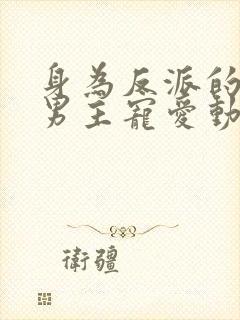 身為反派的
男主寵愛動
衛疆